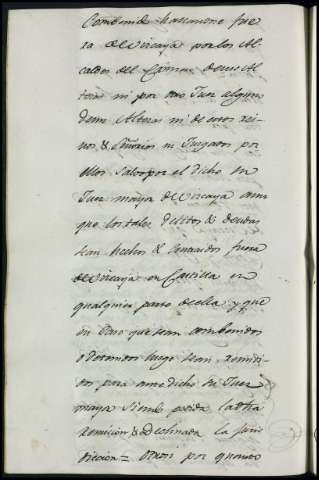 Combenidos llanamente fue
ra de Vizcaya por los Al
caldes del Crimen de sus Al
tezas ni por otro Juez alguno
de sus Altezas ni de esos rei
nos & Señorios ni Juzgados por
ellos salvo por el dicho su
Juez mayor de Vizcaya aun
que los tales delitos & deudas
sean hechos & fuera
de Vizcaya en Castilla en
qualquier parte de ella y que
en caso que sean combenidos
o detenidos luego sean remiti
dos para ante dicho su Juez
mayor siendo pedida la dha
remision & declinada la juris
diccion = Otrosi por quanto